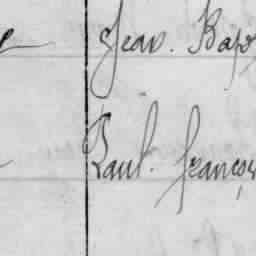 Jean. Bap
Paul. françois